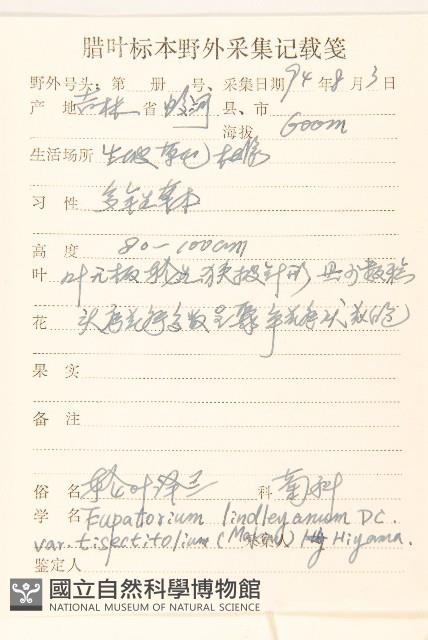 腊叶标本野外采集记载笺
野外号头：第 册 号、采集日期 94 年 8 月 3 日
产 地 吉林 省 蛟河 县、市
海拔 600m
生活场所 草地 林缘
习 性 多年生草本
高 度 80-100cm
叶 叶无柄 轮生 披针形
花 头状花序多数
果 实
备 注
俗 名 轮叶泽兰 科 菊科
学 名 Eupatorium lindleyanum DC.
var. (Makino) Hiyama.
鉴定人
國立自然科學博物館
NATIONAL MUSEUM OF NATURAL SCIENCE